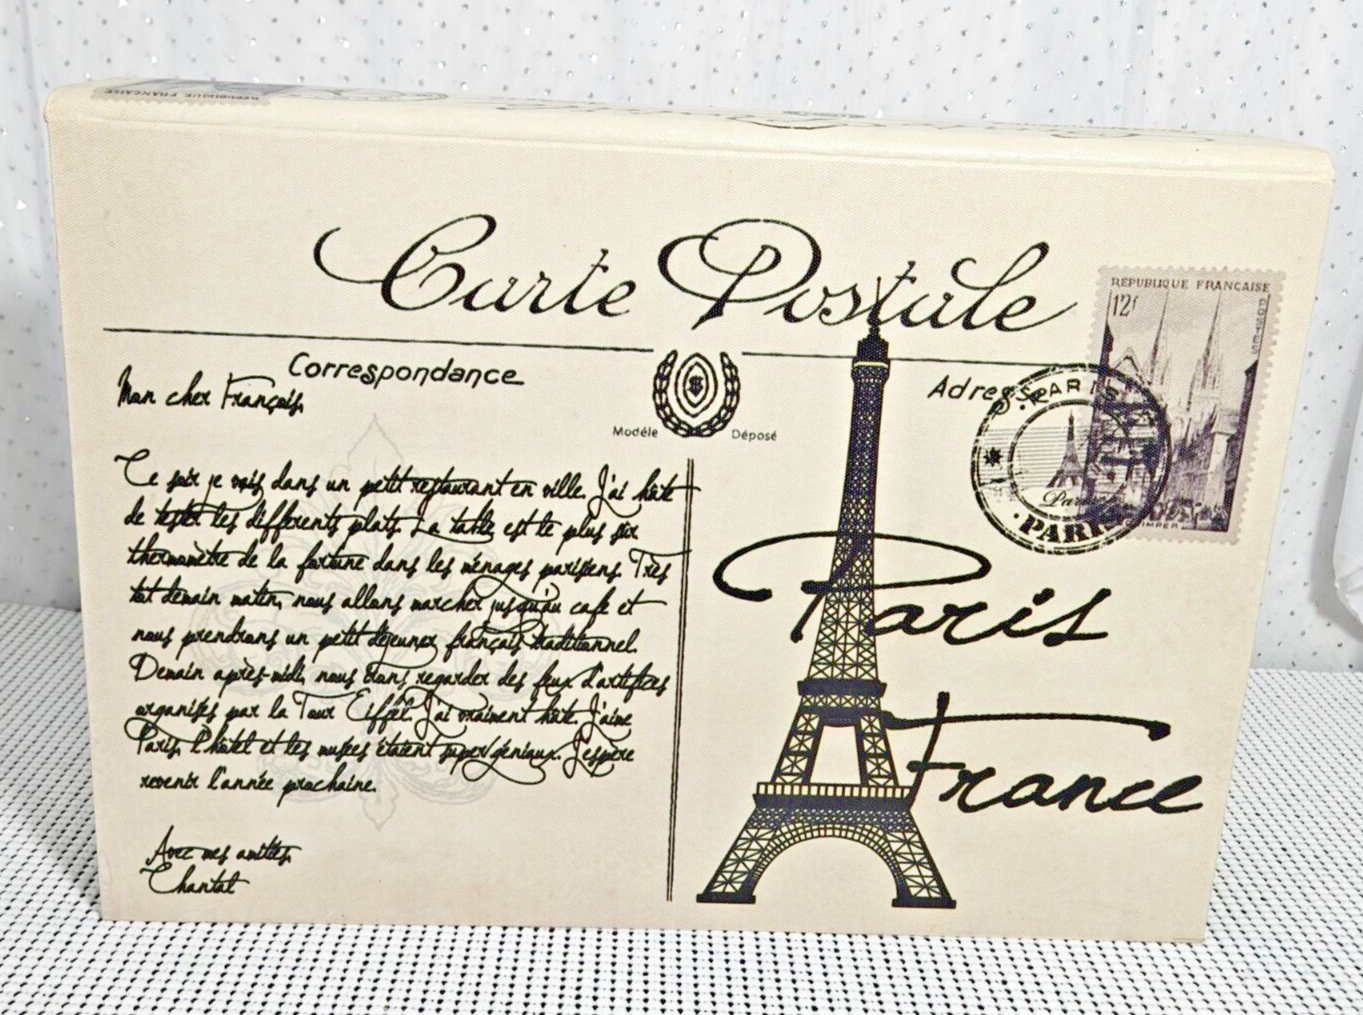 REPUBLIQUE FRANÇAISE
Carte Postale
REPUBLIQUE FRANÇAISE
12f
Correspondance
Adresse
Modéle Déposé
PARIS
Paris
PARIS
QUIMPER
Mon cher François,
Ce soir je vais dans un petit restaurant en ville. J'ai hâte
de tester les differents plats. La table est le plus sûr
thermomètre de la fortune dans les ménages parisiens. Très
tot demain matin, nous allons marcher jusqu'au café et
nous prendrons un petit dejeuner français traditionnel.
Demain après-midi, nous irons regarder des feux d'artifices
organisés par la Tour Eiffel. J'ai vraiment hâte. J'aime
Paris, l'hôtel et les musées étaient super/géniaux. J'espère
revenir l'année prochaine.
Avec mes amitiés,
Chantal
Paris
France